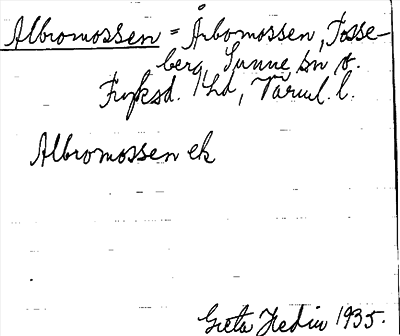 Albromossen = Årbomossen, Fosse-
berg, Sunne sn o.
Fryksd. hd, Värml. l.
Albromossen ek
Greta Hedin 1935.